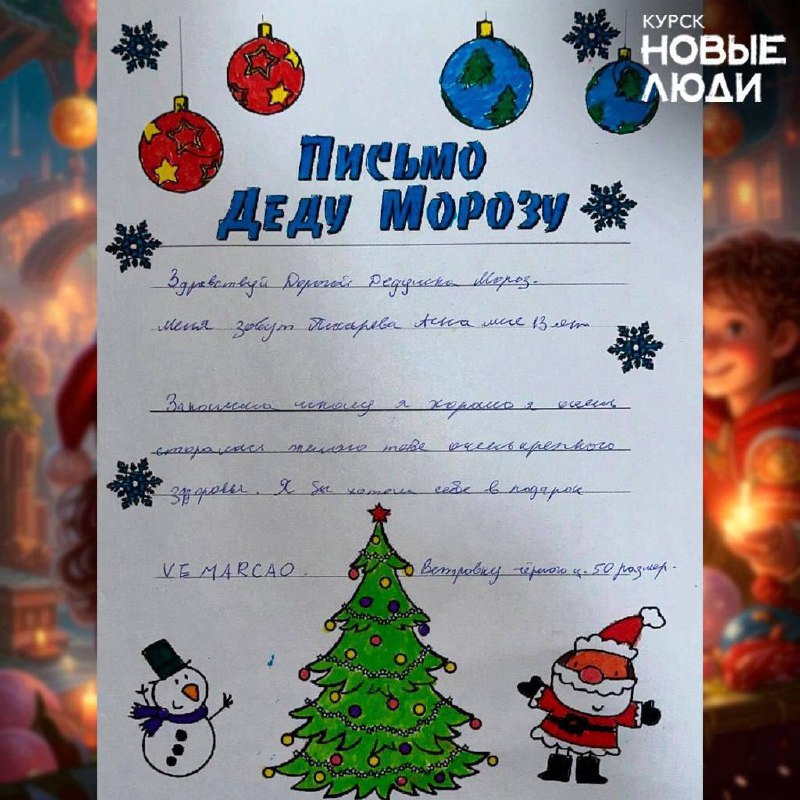 КУРСК
НОВЫЕ
ЛЮДИ
Письмо
Деду Морозу
Здравствуй Дорогой Дедушка Мороз.
Меня зовут Анна мне 13 лет
я хорошо я очень
старалася желаю тебе очень крепкого
здоровья. Я бы хотела себе в подарок
VE MARCAO. Ветровку чёрного ц. 50 размер.